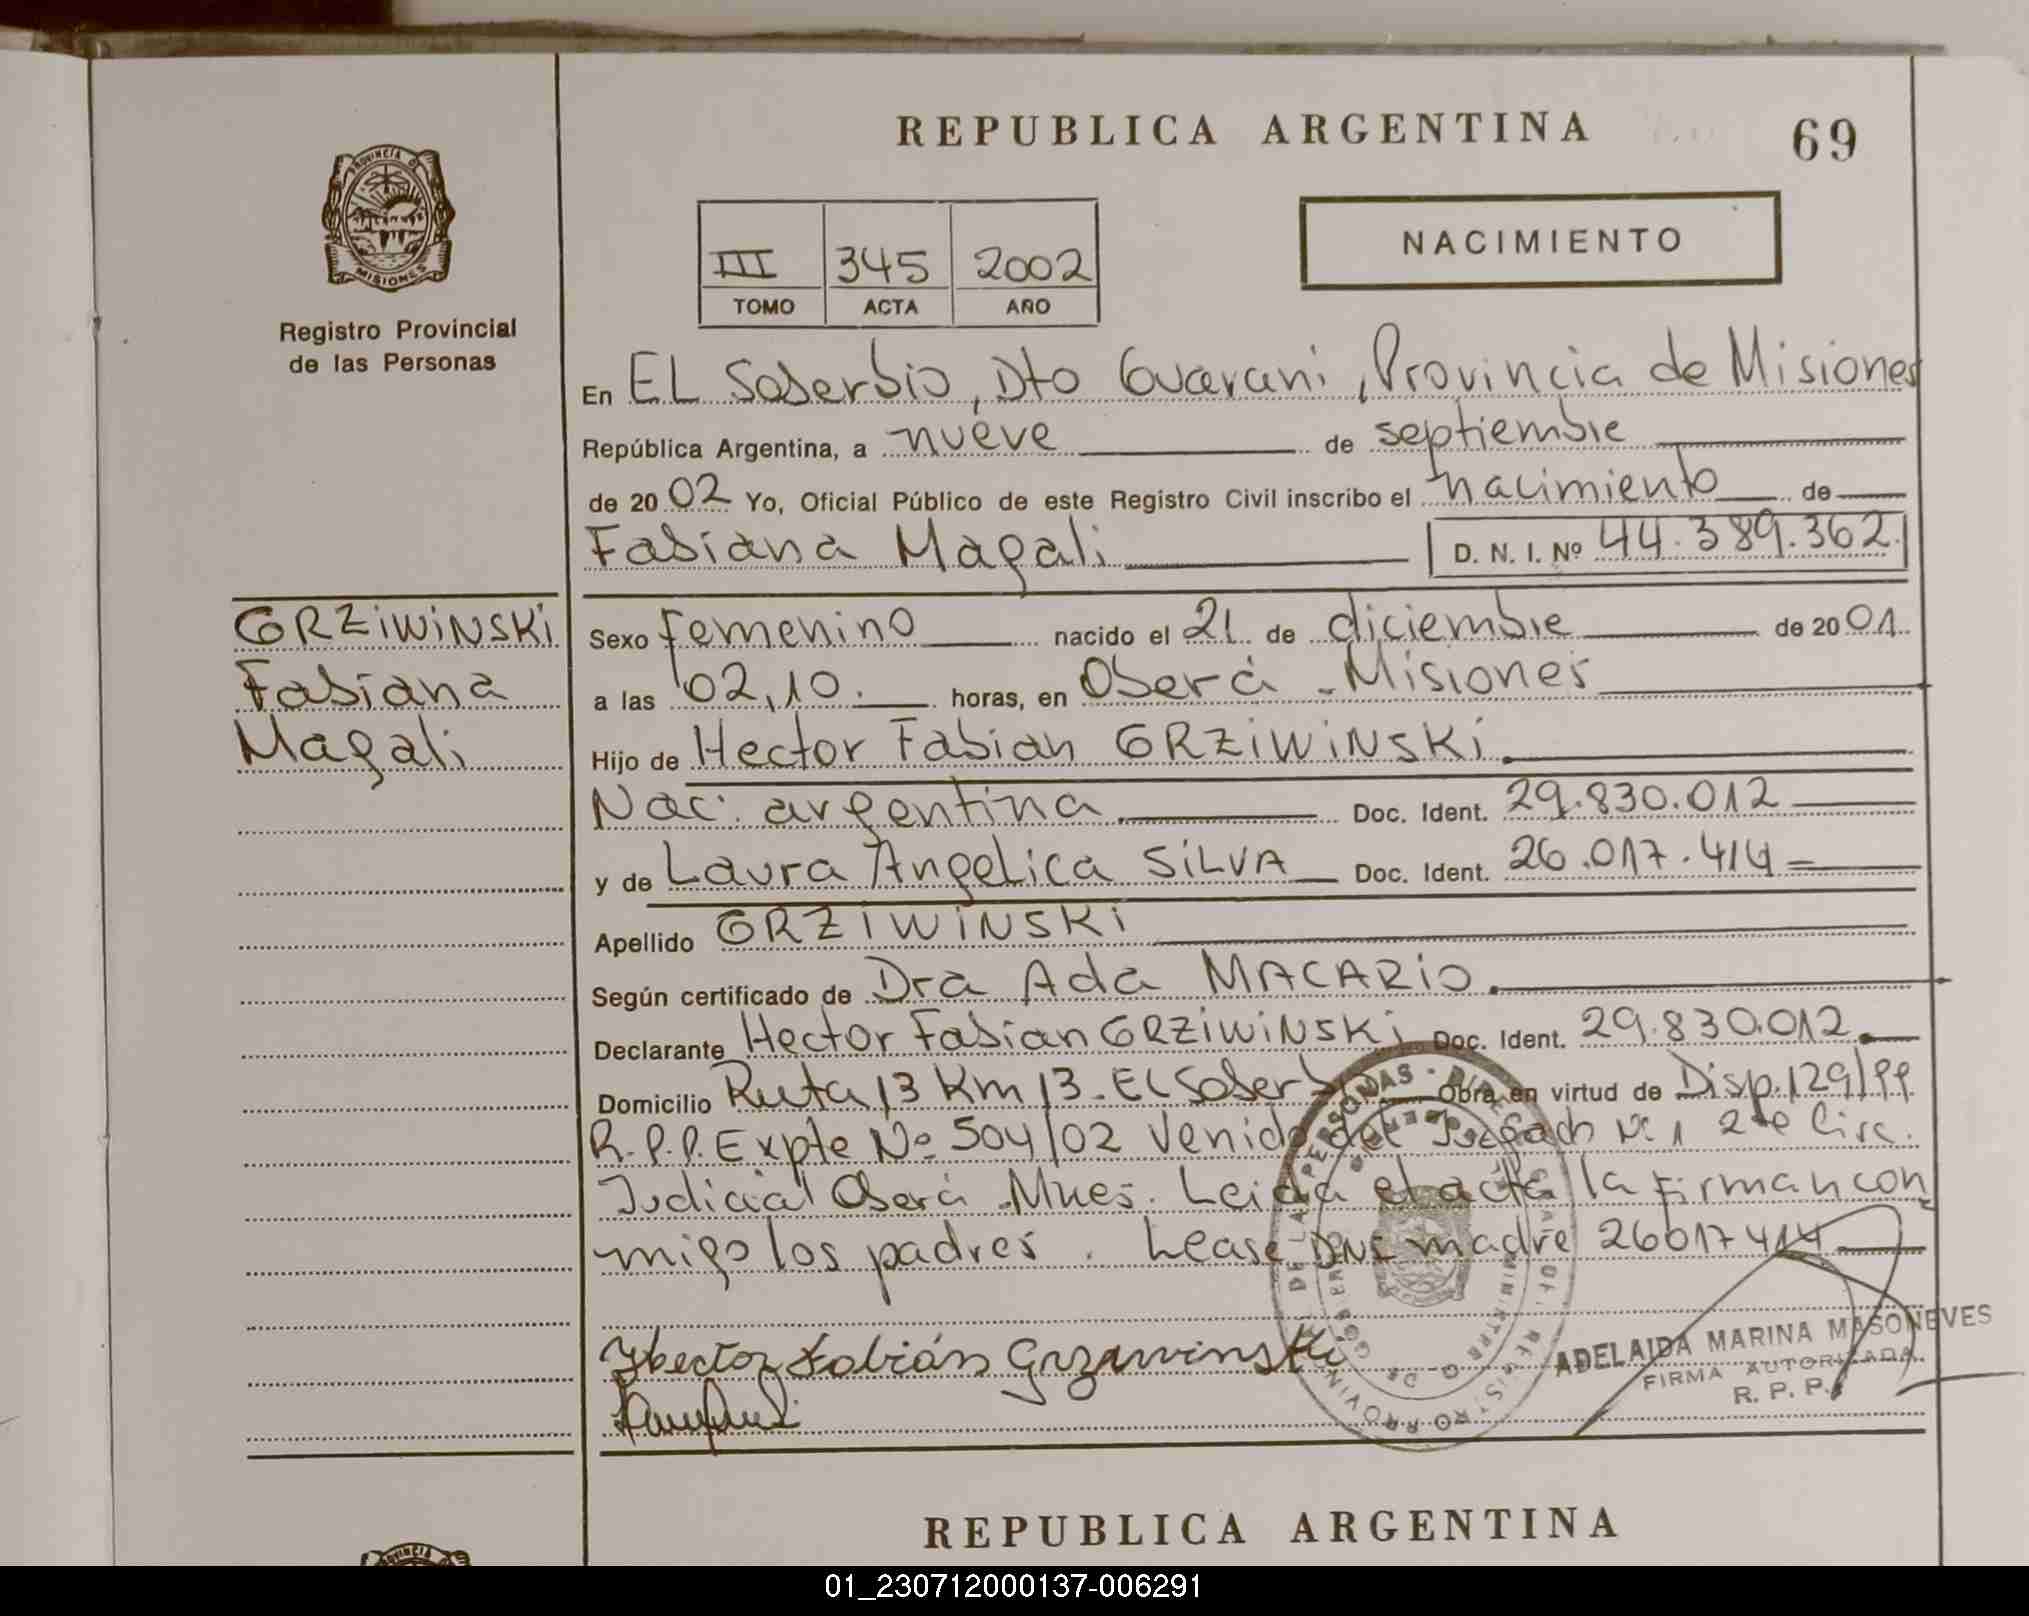 REPUBLICA ARGENTINA
69
PROVINCIA DE
MISIONES
Registro Provincial
de las Personas
III 345 2002
TOMO ACTA AÑO
NACIMIENTO
En EL Soberbio, Dto Guarani, Provincia de Misiones
República Argentina, a nueve de septiembre
de 2002 Yo, Oficial Público de este Registro Civil inscribo el nacimiento de
Fabiana Magali D. N. I. Nº 44.389.362
GRZIWINSKI
Fabiana
Magali
Sexo femenino nacido el 21 de diciembre de 2001
a las 02,10. horas, en Oberá - Misiones
Hijo de Hector Fabian GRZIWINSKI
Nac. argentina Doc. Ident. 29.830.012
y de Laura Angelica SILVA Doc. Ident. 26.017.414
Apellido GRZIWINSKI
Según certificado de Dra Ada MACARIO
Declarante Hector Fabian GRZIWINSKI Doc. Ident. 29.830.012
Domicilio Ruta 13 Km 13 - EL Soberb Obra en virtud de Disp. 129/99
R.P.P. Expte Nº 504/02 Venido del Juzgado Nº 1 2de Circ.
Judicial Oberá - Mnes. Leida el acta la firman con
migo los padres. Lease DNI madre 26017414
Hector Fabián Grziwinski
ADELAIDA MARINA MASONEVES
FIRMA AUTORIZADA
R. P. P.
REPUBLICA ARGENTINA
PROVINCIA
01_230712000137-006291